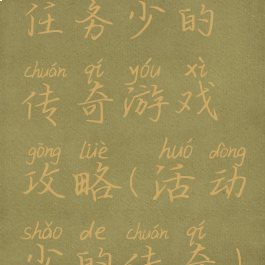 任务少的
chuán qí yóu xì
传奇游戏
gōng lüè huó dòng
攻略(活动
shǎo de chuán qí
少的传奇)